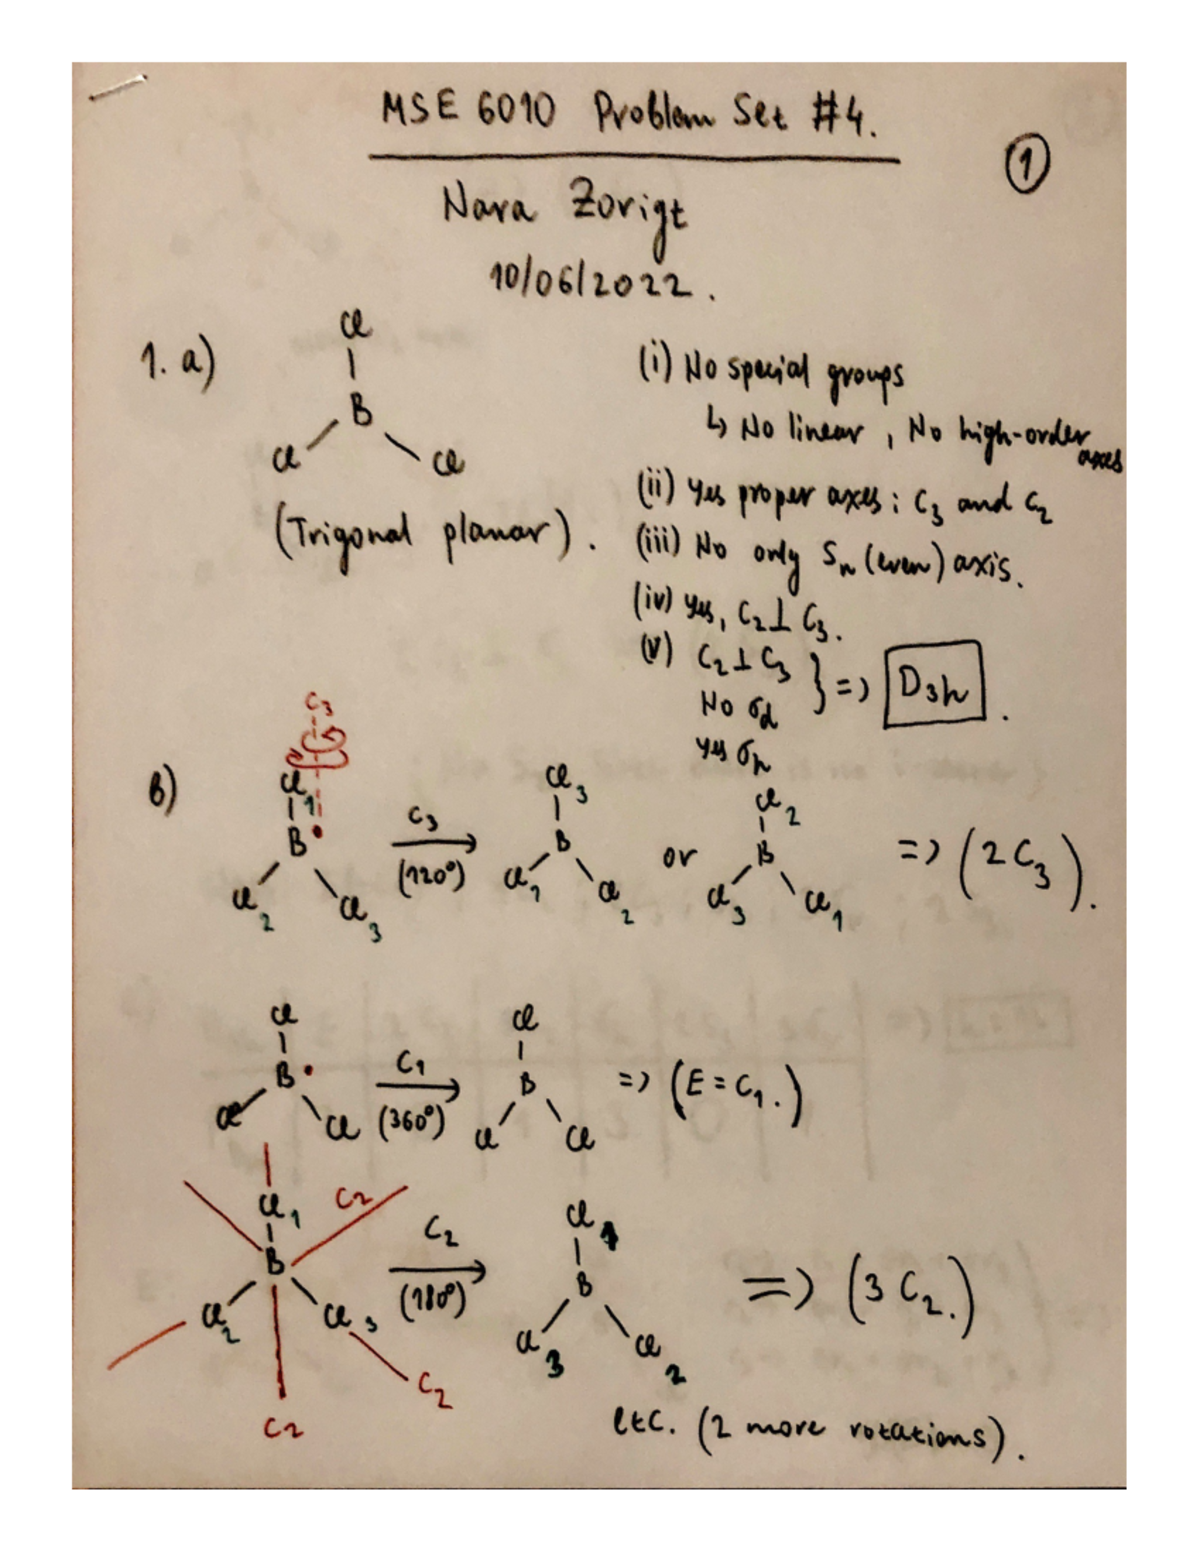 MSE 6010 Problem Set #4.
①
Nara Zorigt
10/06/2022.
1. a)
Cl
B
Cl Cl
(Trigonal planar).
(i) No special groups
↳ No linear, No high-order axes
(ii) Yes proper axes: C₃ and C₂
(iii) No only Sₙ (even) axis.
(iv) Yes, C₂ ⊥ C₃.
(v) C₂ ⊥ C₃
No σd
Yes σh
} => D₃h.
b)
C₃
Cl₁
B
Cl₂ Cl₃
C₃
(120°)
Cl₃
B
Cl₁ Cl₂
or
Cl₂
B
Cl₃ Cl₁
=> (2C₃).
Cl
B
Cl Cl
C₁
(360°)
Cl
B
Cl Cl
=> (E = C₁.)
Cl₁ C₂
B
Cl₂ Cl₃
C₂
C₂
C₂
(180°)
Cl₁
B
Cl₃ Cl₂
=> (3 C₂.)
etc. (2 more rotations).